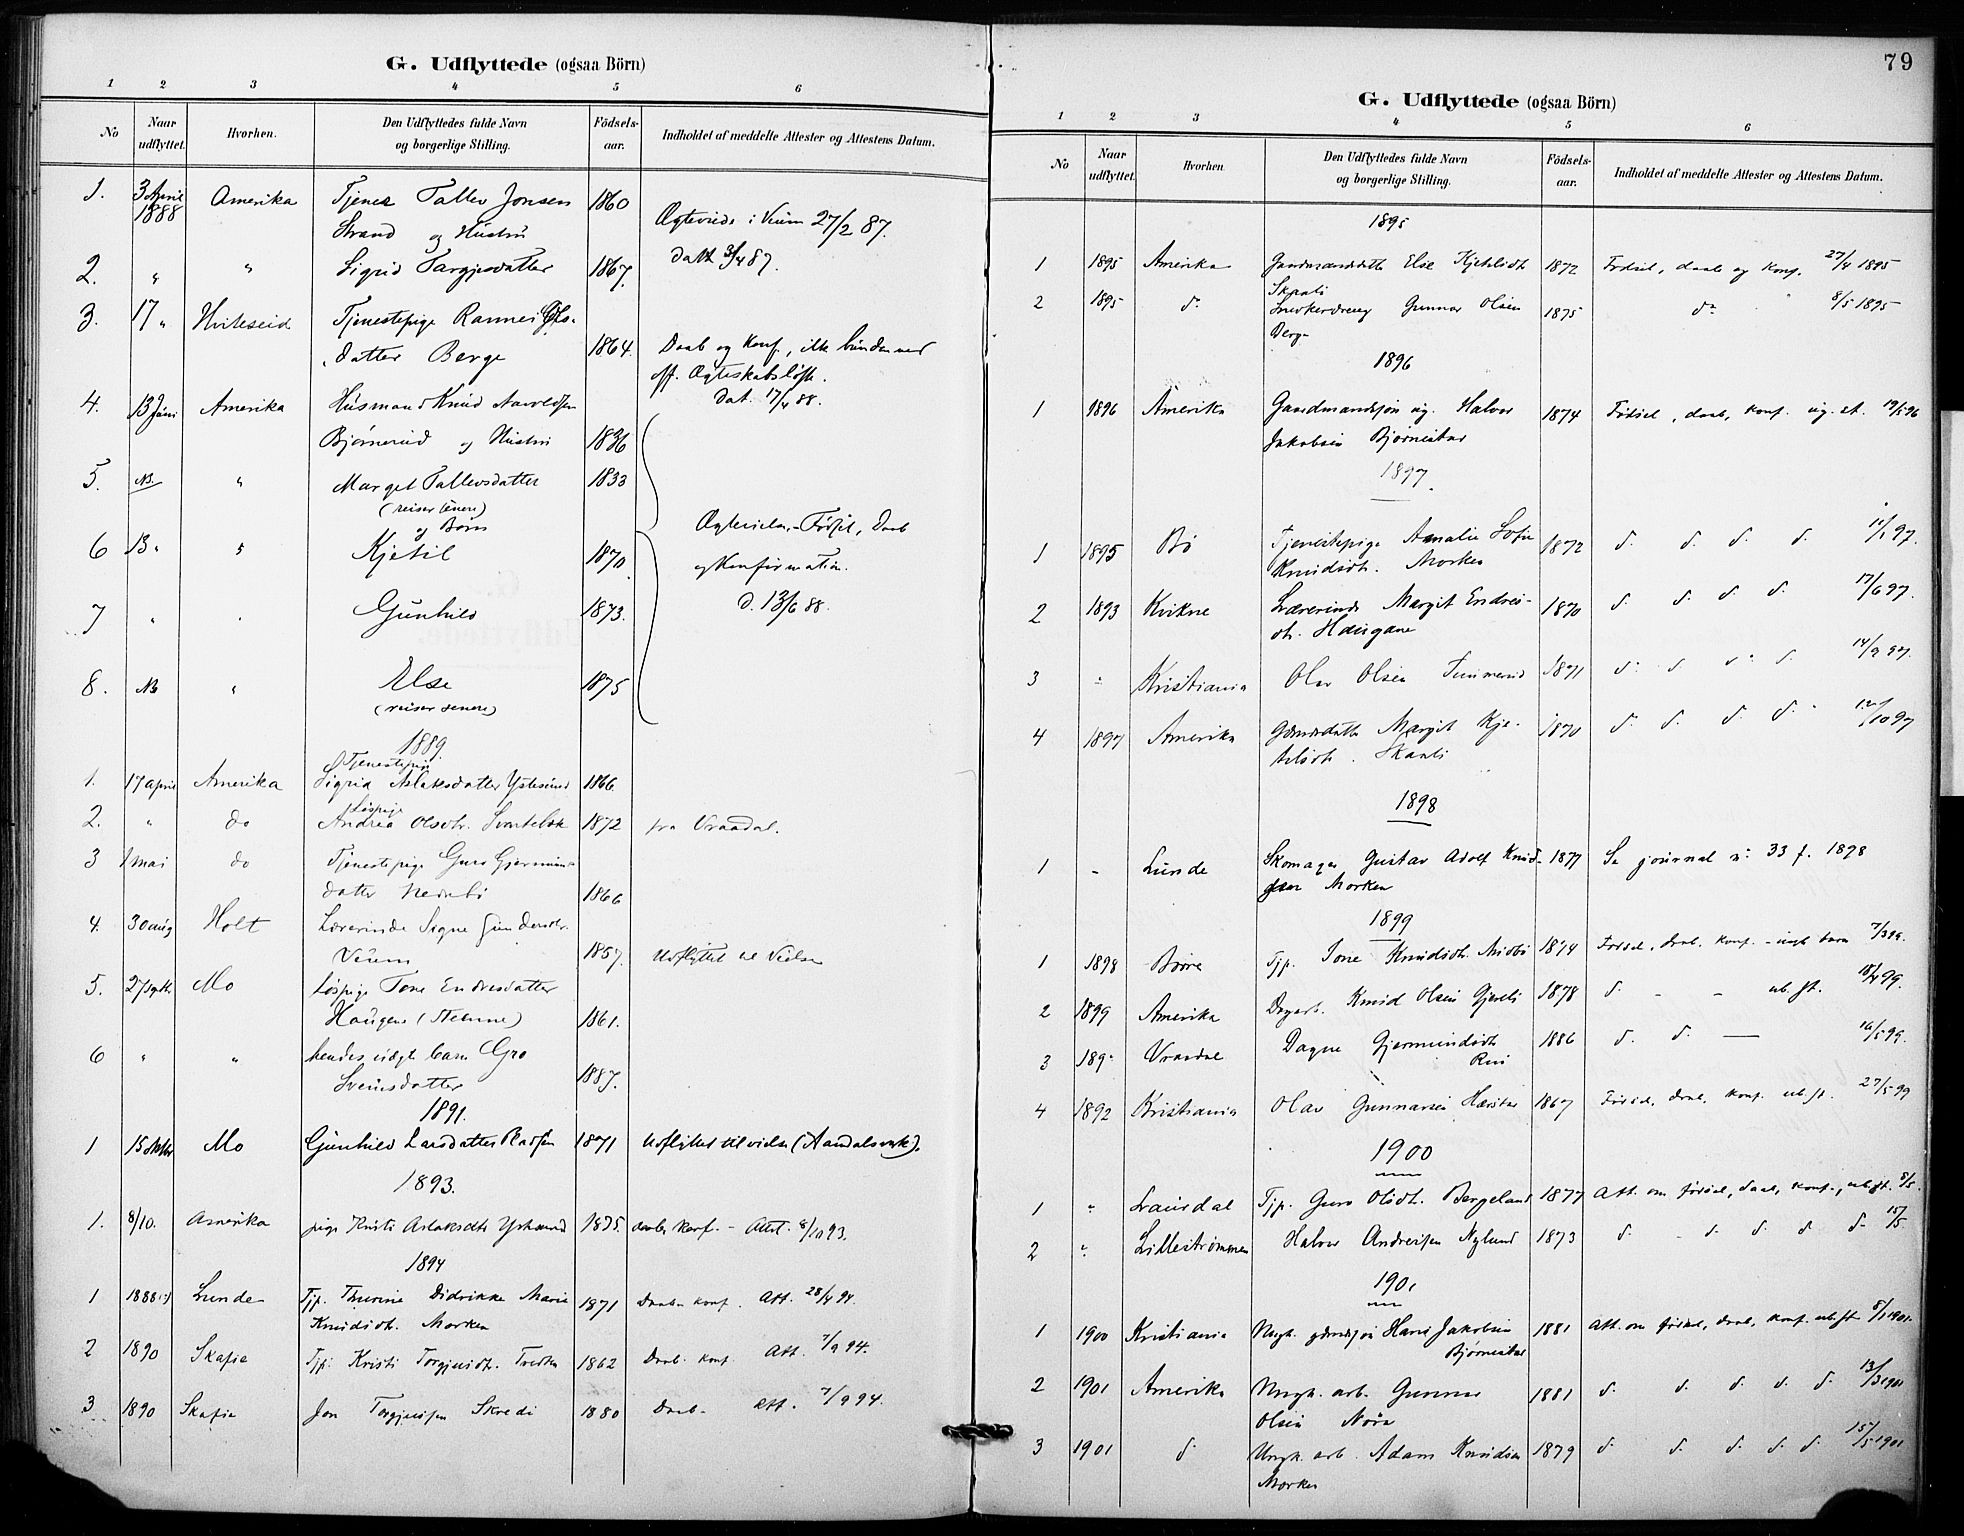 G. Udflyttede (ogsaa Börn)
1 2 3 4 5 6
No Naar udflyttet. Hvorhen. Den Udflyttedes fulde Navn og borgerlige Stilling. Födsels-aar. Indholdet af meddelte Attester og Attestens Datum.
1. 3 April 1888 Amerika Tjener Tallev Jonsen 1860
Strand og Hustru Ægteviede i Veum 27/2 87.
2. " " Sigrid Targjesdatter 1867. Dat. 3/4 87.
3. 17 " Hviteseid Tjenestepige Rannei Ols-
datter Berge 1864. Daab og Konf., ikke bunden ved
off. Ægteskabsløfte.
Dat. 17/4 88.
4. 13 Juni Amerika Husmand Knud Aavoldsen
Bjørnerud og Hustru 1836
5. NB. " Marget Tallevsdatter 1833
(reiser senere)
og Børn Ægtevielse, - Fødsel, Daab
6 13 " " Kjetil 1870 og Konfirmation.
7 " " Gunhild 1873. D. 13/6 88.
8. NB " Else 1875
(reiser senere)
1889.
Tjenestepige
1. 17 april Amerika Sigrid Aslaksdatter Ystesund 1866
Løspige
2. " do Andrea Olsdtr. 1872 fra Vraadal.
3 1 mai do Tjenestepige Guro Gjermunds-
datter Nedrebø 1866
4. 30 aug Holt Lærerinde Signe Gundersdtr.
Veum 1857. Udflyttet ved Vielse
5. 27 Septbr Mo Løspige Tone Endresdatter
Haugene 1861.
6 " " hendes uægte barn Gro
Sveinsdatter 1887.
1891.
1 15 Mo Gunhild Larsdatter 1871 Udflyttet til vielse (Aamdalsverk).
1893.
1. 8/10. Amerika pige Kristi Aslaksdtr Ystesund 1875. daab, konf. - Attest. 8/10 93.
1894
1 1888 Lunde Tjp. Thurine Didrikke Marie 1871 Daab konf. Att. 28/4 94.
Knudsdtr. Morken
2 1890 Skafsaa Tjp. Kristi Torgjusdt. Tveten 1862 Daab. konf. Att. 7/9 94.
3 1890 Skafsaa Jon Torgjussen Skredi 1880 Daab. Att. 7/9 94.
79
G. Udflyttede (ogsaa Börn)
1 2 3 4 5 6
No Naar udflyttet. Hvorhen. Den Udflyttedes fulde Navn og borgerlige Stilling. Födsels-aar. Indholdet af meddelte Attester og Attestens Datum.
1895
1 1895 Amerika Gaardmandsdatter Else Kjetilsdt. 1872 Fødsel, daab og konf. 27/4 1895
Skanti
2 1895 do Snedkerdreng Gunnar Olsen 1875 do 8/5 1895
Berge
1896
1 1896 Amerika Gaardmandssøn ug. Halvor 1874 Fødsel, daab, konf. ug. st. 19/5 96
Jakobsen Bjørnestad
1897.
1 1895 Bø Tjenestepige Amalie Sofie 1872 d. d. d. d. 11/1 97.
Knudsdt. Morken
2 1893 Kvikne Lærerinde Margit Endres- 1870 d. d. d. d. 17/6 97.
dt. Haugane
3 " Kristiania Olav Olsen 1871 d. d. d. d. 14/9 97.
4 1897 Amerika Gdmdsdatter Margit Kje- 1870 d. d. d. d. 12/10 97
tilsdt. Skanti
1898
1 - Lunde Skomager Gustav Adolf Knud- 1877 Se journal no: 33 f. 1898
sen Morken
1899
1 1898 Børte Tjp. Tone Knudsdt. Midbø 1874 Fødsel, daab, konf. - uægte barn 7/3 99.
2 1899 Amerika Dagarb. Knud Olsen 1878 d. - - ub. st. 18/4 99.
3 189" Vraadal Dagne Gjermundsdt. 1886 d. d. — 16/5 99.
Rui
4 1892 Kristiania Olav Gunnarsen 1867 Fødsel, daab, konf. ub. st. 27/5 99
1900
1 " Laurdal Tjp. Guro Olsdt. Bergeland 1877 Att. om fødsel, daab, konf., ub. st. 8/5.
2 " Lillestrømmen Halvor Andreassen Nylund 1873 d. - d. d. d. d. 15/5
1901
1 1900 Kristiania Ungk. gdmdssøn Hans Jakobsen 1881 Att. om fødsel, daab, konf. ub. st. 8/1 1901.
Bjørnestad
2 1901 Amerika Ungk. arb. Gunnar 1881 d. d. d. d. d. 13/3 1901
Olsen Nøra
3 1901 d. Ungk. arb. Adam Knudsen 1879 d. d. d. d. d. 15/5 1901
Morken